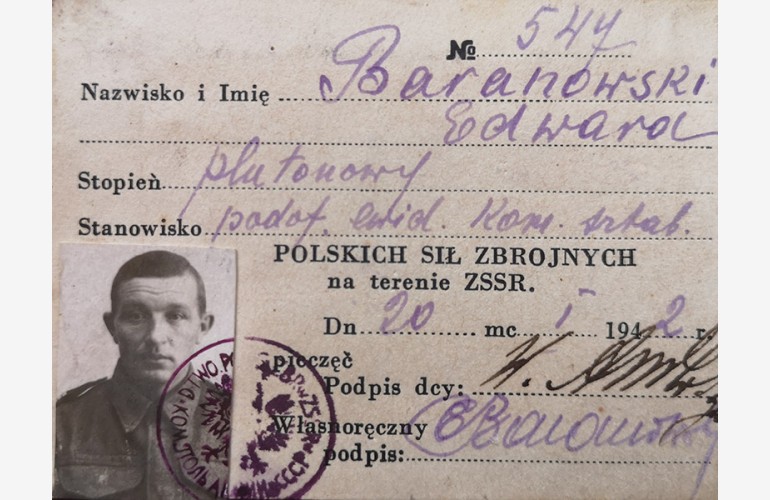 № 547
Nazwisko i Imię Baranowski
Edward
Stopień plutonowy
Stanowisko podof. ewid. Kom. sztab.
POLSKICH SIŁ ZBROJNYCH
na terenie ZSSR.
Dn. 20 mc I 1942 r.
pieczęć
Podpis dcy: W.
Własnoręczny EBaranowski
podpis: